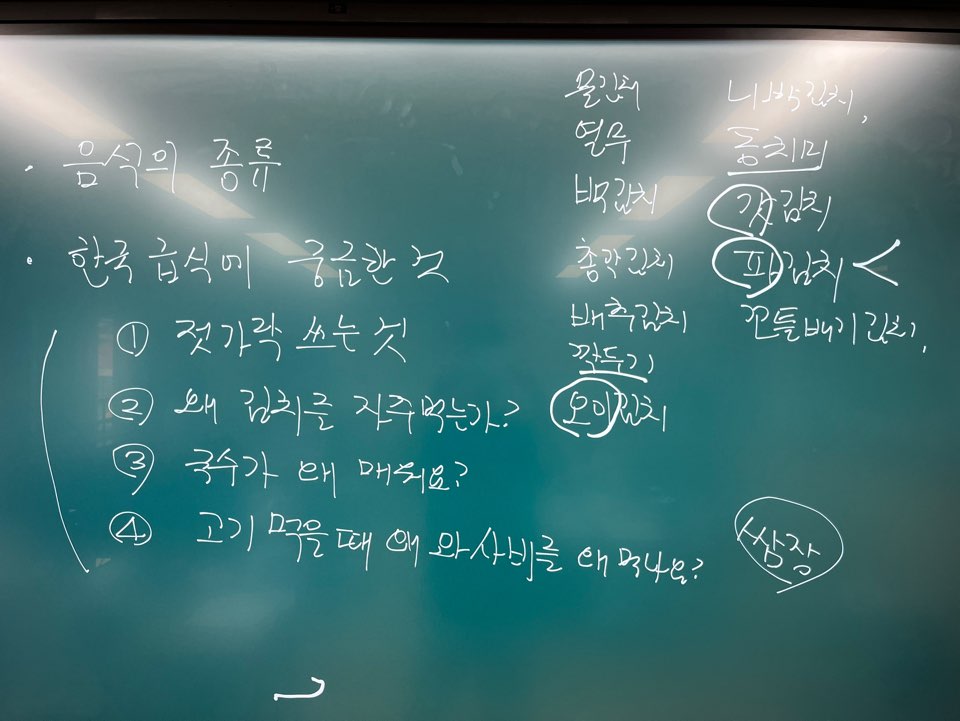 · 음식의 종류
· 한국 급식에 궁금한 것
① 젓가락 쓰는 것
② 왜 김치를 자주먹는가?
③ 국수가 왜 매워요?
④ 고기 먹을 때 왜 와사비를 왜 먹나요?
물김치
열무
백김치
총각김치
배추김치
깍두기
오이김치
나박김치,
동치미
갓김치
파김치 <
김치,
쌈장